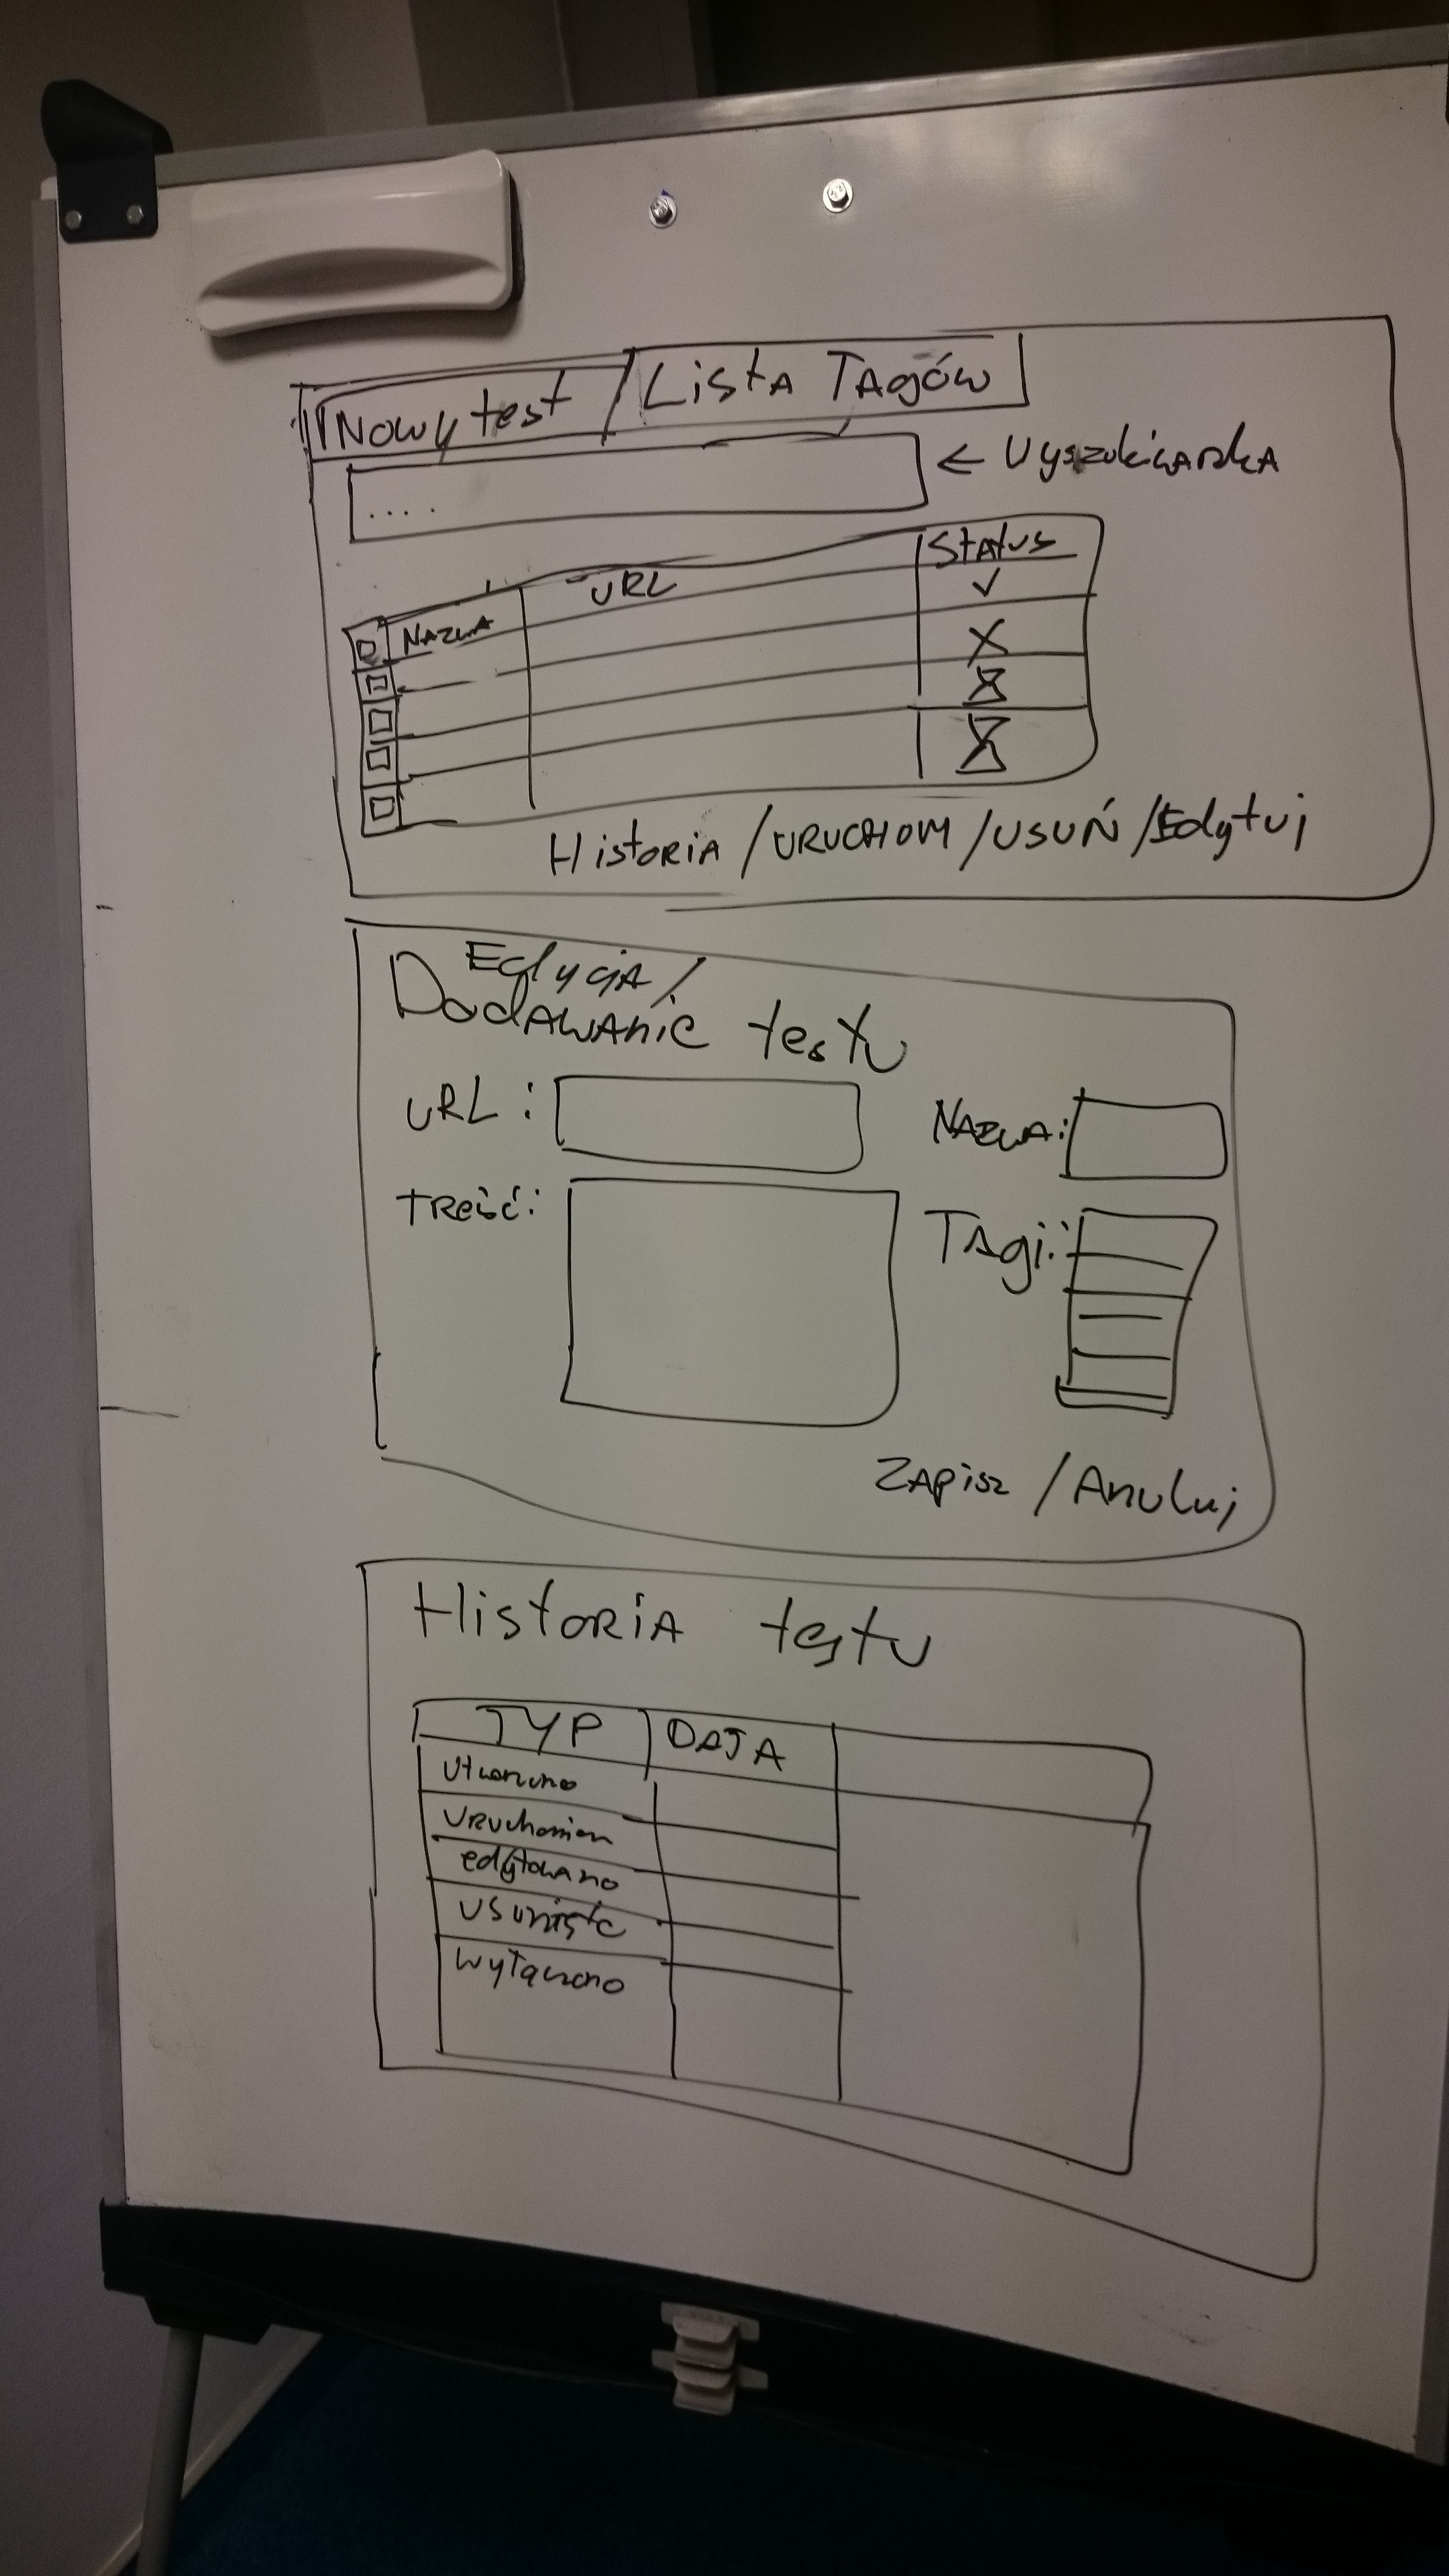 Nowy test / Lista Tagów
.... ← Wyszukiwarka
Nazwa URL Status
Historia / URUCHOM / USUŃ / Edytuj
Edycja /
Dodawanie testu
URL: Nazwa:
Treść: Tagi:
Zapisz / Anuluj
Historia testu
TYP DATA
Utworzono
Uruchomion
edytowano
usunięte
wyłączono